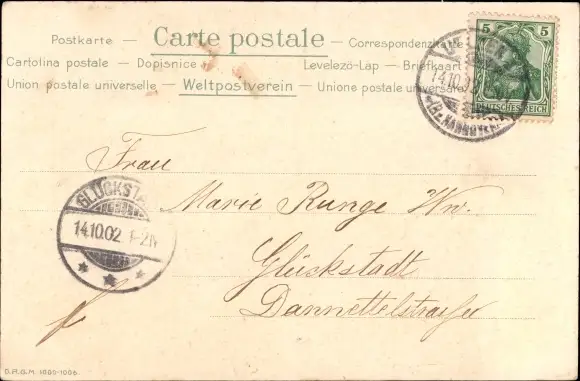 Postkarte — Carte postale — Correspondenzkarte
Cartolina postale — Dopisnice — Levelező-Lap — Briefkaart
Union postale universelle — Weltpostverein — Unione postale universale
5 5
DEUTSCHES REICH
14.10.02
(Bz. HANNOVER)
Frau
Marie Runge Ww.
Glückstadt
Dannettelstrasse
GLÜCKST
14.10.02 1-2N
D.R.G.M. 1005-1006.